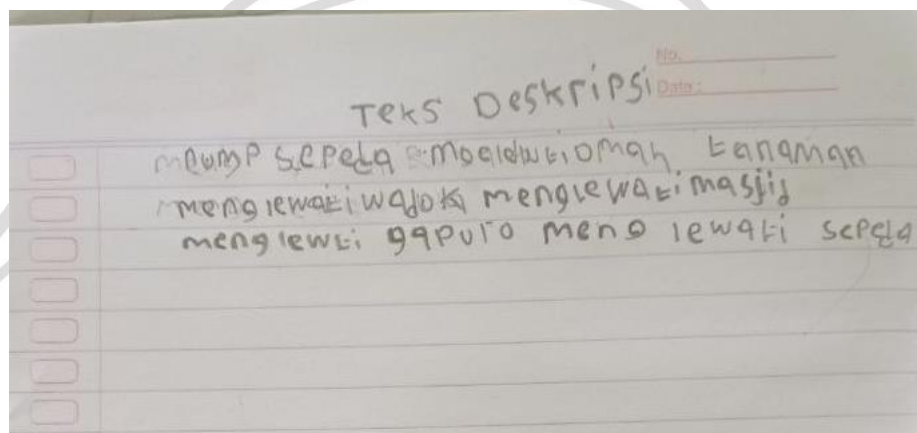 No.
Date:
Teks Deskripsi
sepeda tanaman
menglewati wadok menglewati masjid
menglewti gapuro meng lewati sepeda